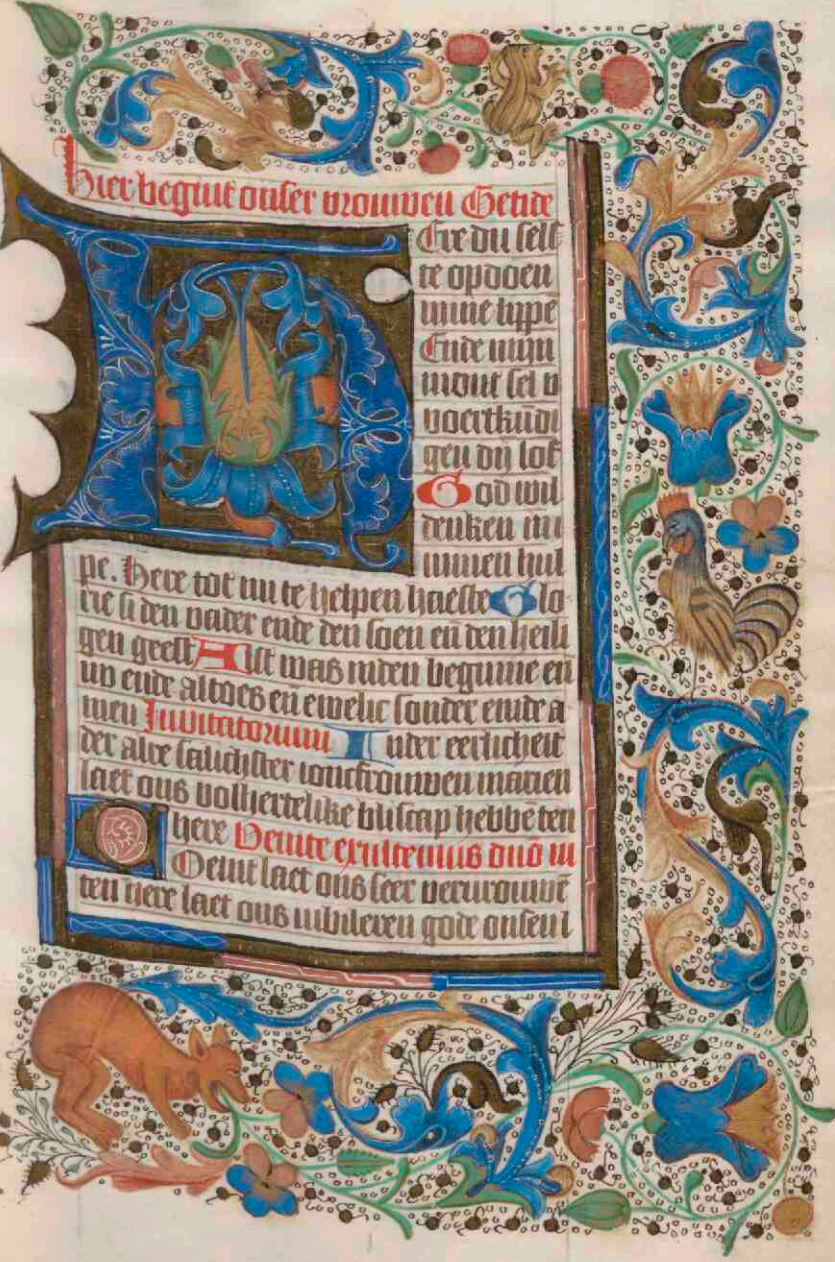 Hier begint onser vrouwen Getide
Ere du selt
te opdoen
mine lippe
Ende mijn
mont sel v
voertkūdi
gen dij lof
God wil
denken in
minen hul
pe. Here tot mi te helpen haeste Glo
rie si den vader ende den soen eñ den heili
gen geest Alst was inden beginne eñ
nv ende altoes eñ ewelic sonder einde a
men Invitatorium Inder eerlicheit
der alre salichster ioncfrouwen marien
laet ons volhertelike bliscap hebbē ten
here Venite exultemus dno in
Coemt laet ons seer vervrouwē
ten here laet ons iubileren gode onsen l